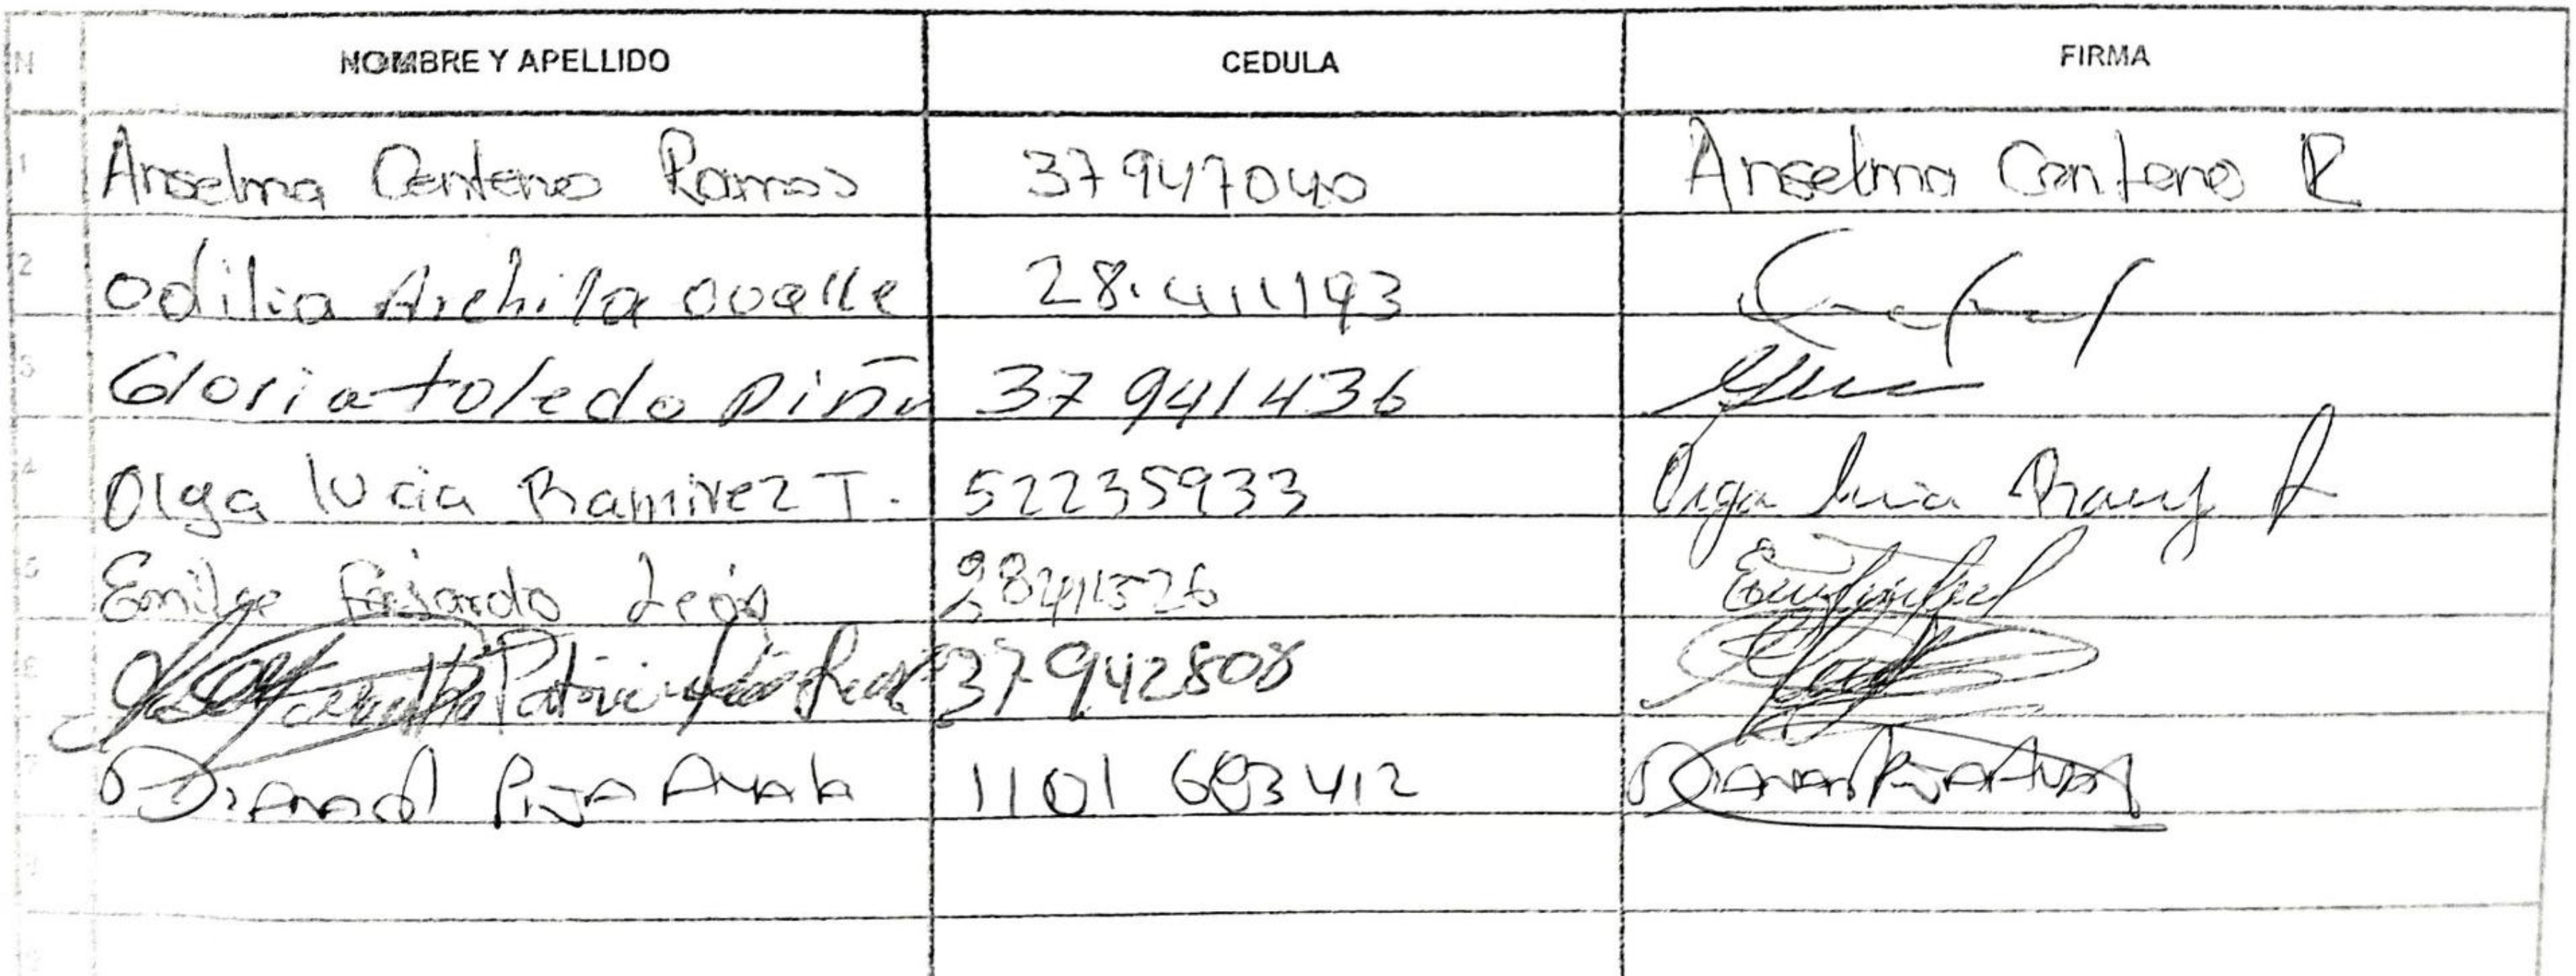 N NOMBRE Y APELLIDO CEDULA FIRMA
1 Anselma Centeno Ramos 37947040 Anselma Centeno R
2 Odilia Archila Ovalle 28.411193
3 Gloria toledo Piñ 37 941436
4 Olga lucia Ramirez T. 52235933 Olga lucia
5 Emilse Fajardo León 28411526
6 Patricia 37942808
7 Diana Piza Ayala 1101 683412
8